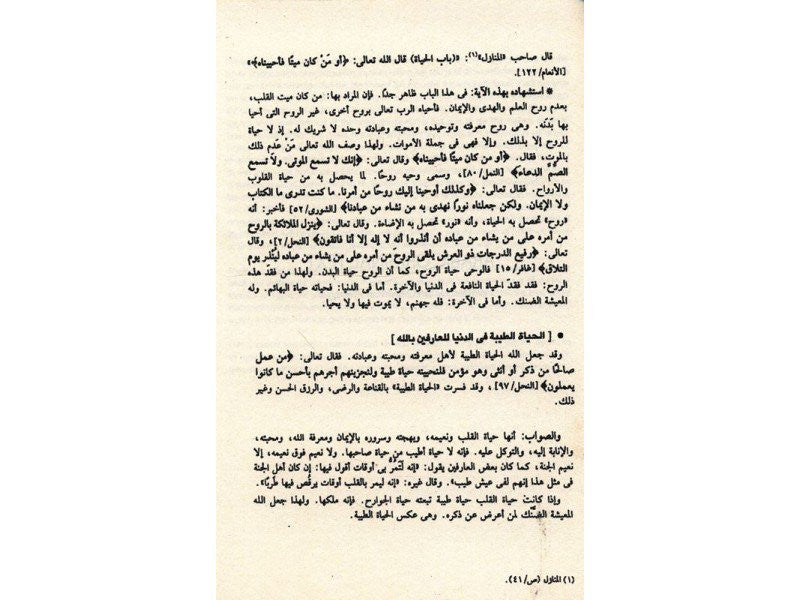 قال صاحب «المنازل»(١): «(باب الحياة) قال الله تعالى: ﴿أو مَنْ كان ميتًا فأحييناه﴾»
[الأنعام/١٢٢].
* استشهاده بهذه الآية: فى هذا الباب ظاهر جدًا. فإن المراد بها: من كان ميت القلب،
بعدم روح العلم والهدى والإيمان. فأحياه الرب تعالى بروح أخرى، غير الروح التى أحيا
بها بَدَنَه. وهى روح معرفته وتوحيده، ومحبته وعبادته وحده لا شريك له. إذ لا حياة
للروح إلا بذلك. وإلا فهى فى جملة الأموات. ولهذا وصف الله تعالى مَنْ عَدِم ذلك
بالموت، فقال. ﴿أو من كان ميتًا فأحييناه﴾ وقال تعالى: ﴿إنك لا تسمع الموتى. ولا تسمع
الصُّمَّ الدعاء﴾ [النمل/٨٠]، وسمى وحيه روحًا. لما يحصل به من حياة القلوب
والأرواح. فقال تعالى: ﴿وكذلك أوحينا إليك روحًا من أمرنا. ما كنت تدرى ما الكتاب
ولا الإيمان. ولكن جعلناه نورًا نهدى به من نشاء من عبادنا﴾ [الشورى/٥٢] فأخبر: أنه
«روح» تحصل به الحياة، وأنه «نور» تحصل به الإضاءة. وقال تعالى: ﴿ينزل الملائكة بالروح
من أمره على من يشاء من عباده أن أنذروا أنه لا إله إلا أنا فاتقون﴾ [النحل/٢]، وقال
تعالى: ﴿رفيع الدرجات ذو العرش يلقى الروحَ من أمره على من يشاء من عباده ليُنْذِر يوم
التلاق﴾ [غافر/١٥] فالوحى حياة الروح، كما أن الروح حياة البدن. ولهذا من فقد هذه
الروح: فقد فقدَ الحياة النافعة فى الدنيا والآخرة. أما فى الدنيا: فحياته حياة البهائم. وله
المعيشة الضنك. وأما فى الآخرة: فله جهنم، لا يموت فيها ولا يحيا.
* [ الحياة الطيبة فى الدنيا للعارفين بالله ]
وقد جعل الله الحياة الطيبة لأهل معرفته ومحبته وعبادته. فقال تعالى: ﴿من عمل
صالحًا من ذكر أو أنثى وهو مؤمن فلنحيينه حياة طيبة ولنجزينهم أجرهم بأحسن ما كانوا
يعملون﴾ [النحل/٩٧]، وقد فسرت «الحياة الطيبة» بالقناعة والرضى، والرزق الحسن وغير
ذلك.
والصواب: أنها حياة القلب ونعيمه، وبهجته وسروره بالإيمان ومعرفة الله، ومحبته،
والإنابة إليه، والتوكل عليه. فإنه لا حياة أطيب من حياة صاحبها. ولا نعيم فوق نعيمه، إلا
نعيم الجنة، كما كان بعض العارفين يقول: «إنه لَتَمُرُّ بى أوقات أقول فيها: إن كان أهل الجنة
فى مثل هذا إنهم لفى عيش طيب». وقال غيره: «إنه ليمر بالقلب أوقات يرقُص فيها طَرَبًا».
وإذا كانت حياة القلب حياة طيبة تبعته حياة الجوارح. فإنه ملكها. ولهذا جعل الله
المعيشة الضنك لمن أعرض عن ذكره. وهى عكس الحياة الطيبة.
(١) المنازل (ص/٤١).